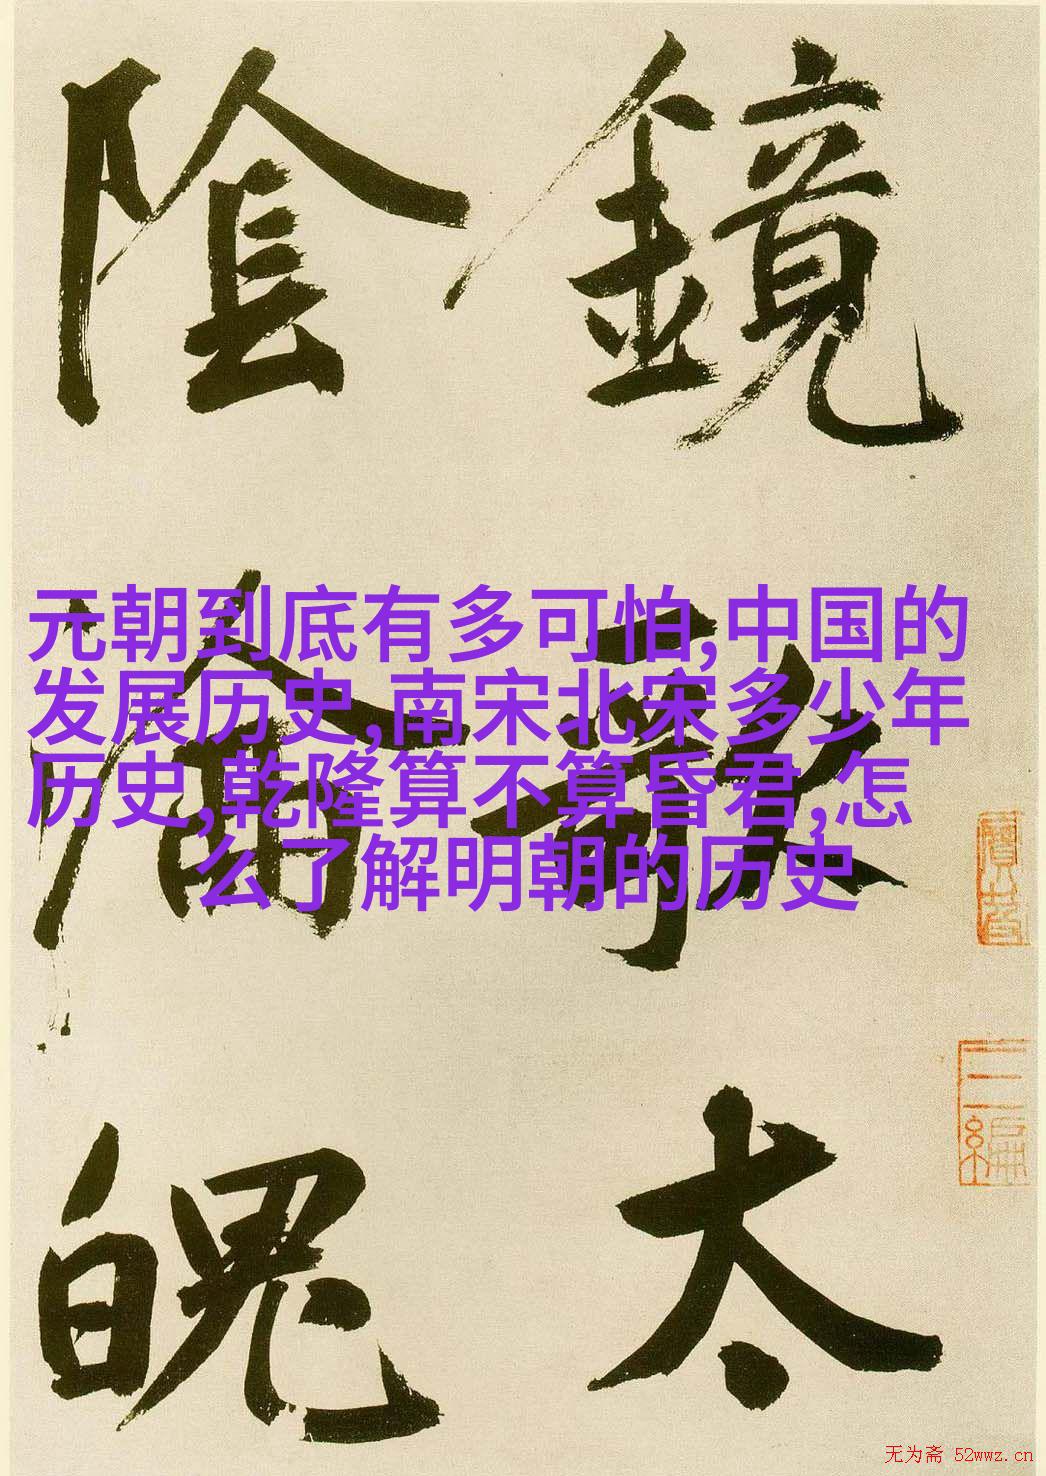 鏡太
陰魄
元朝到底有多可怕,中国的
发展历史,南宋北宋多少年
历史,乾隆算不算昏君,怎
么了解明朝的历史
无为斋 52wwz.cn